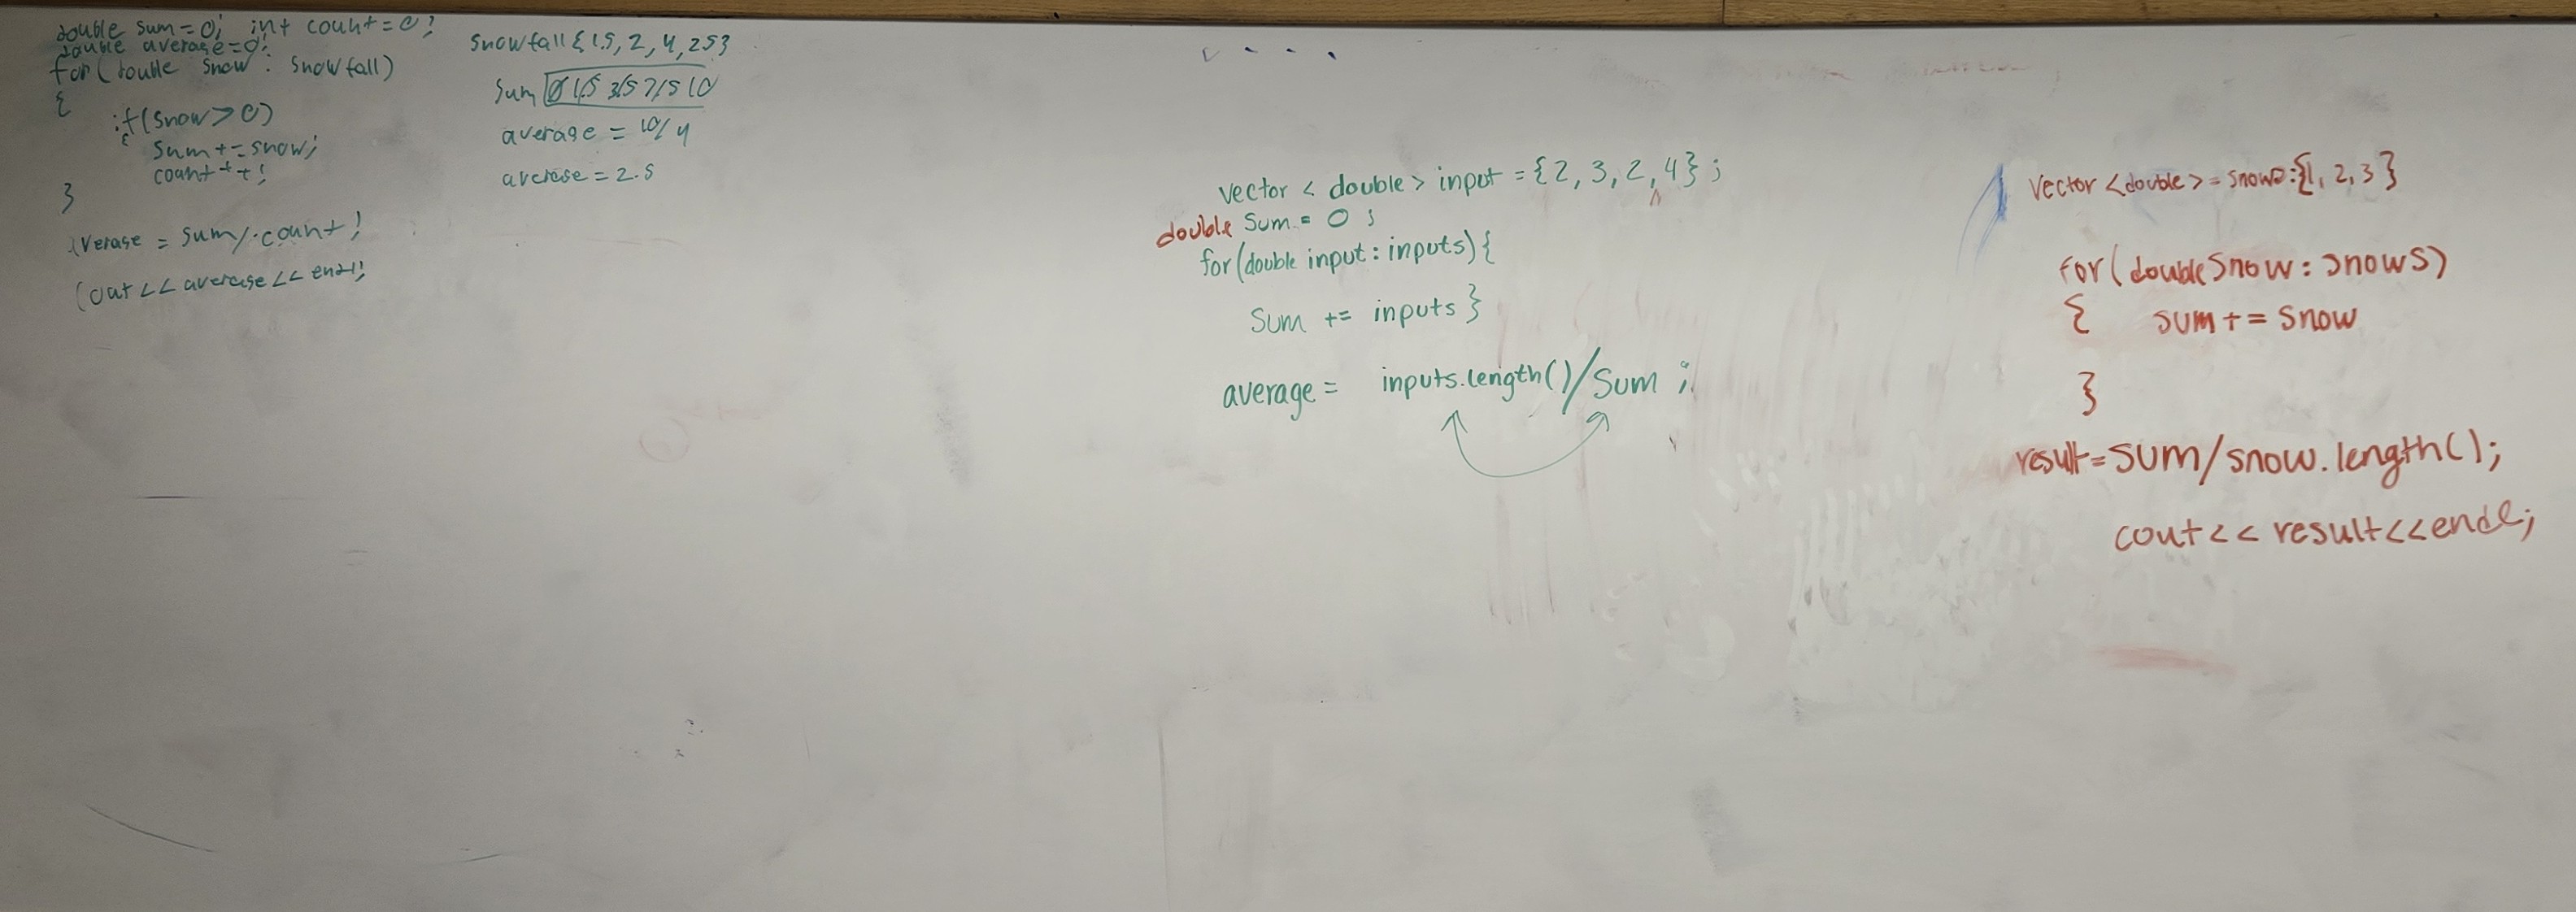 double sum = 0; int count = 0;
double average = 0;
for (double snow : snowfall)
{
if (snow > 0)
{ sum += snow;
count ++;
}
average = sum / count;
cout << average << endl;
snowfall {1.5, 2, 4, 2.5}
sum 0 1.5 3.5 7.5 10
average = 10/4
average = 2.5
vector < double > input = {2, 3, 2, 4} ;
double sum = 0 ;
for (double input : inputs) {
sum += inputs }
average = inputs.length() / sum ;
vector <double> = snows : {1, 2, 3}
for (double snow : snows)
{ sum += snow
}
result = sum / snow.length();
cout << result << endl;